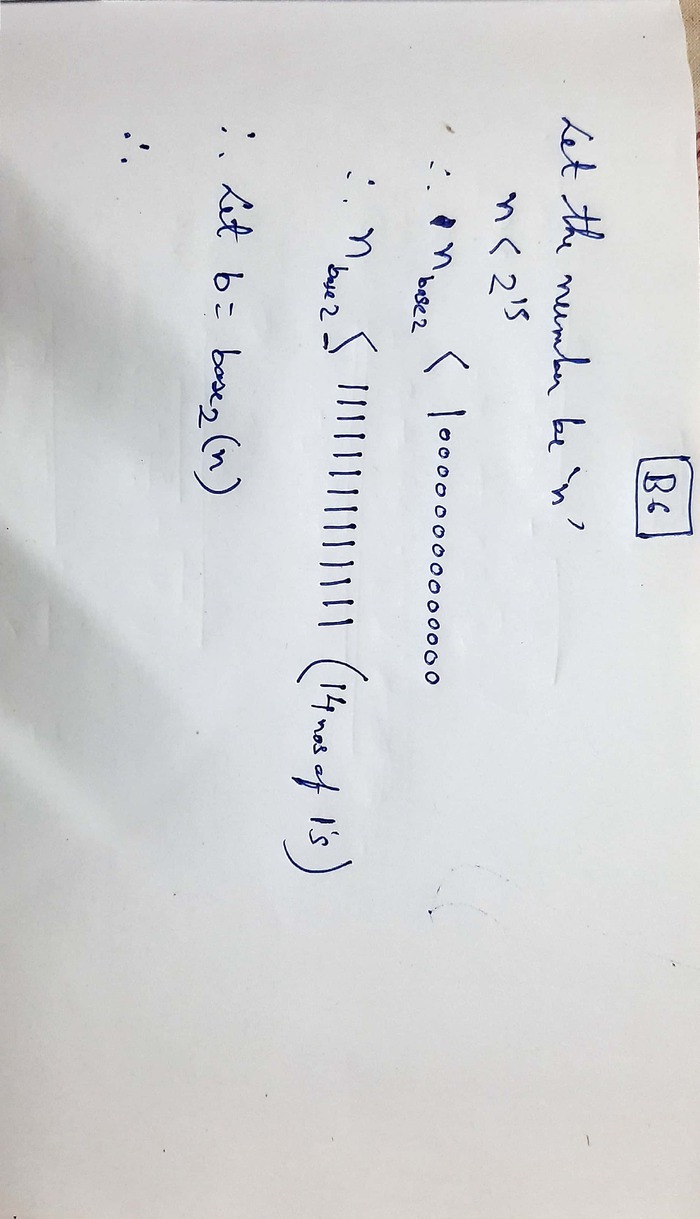 B6
Let the number be 'n'
n < 2^15
∴ n base2 < 1000000000000000
∴ n base2 ≤ 11111111111111 (14 nos of 1's)
∴ Let b = base2(n)
∴